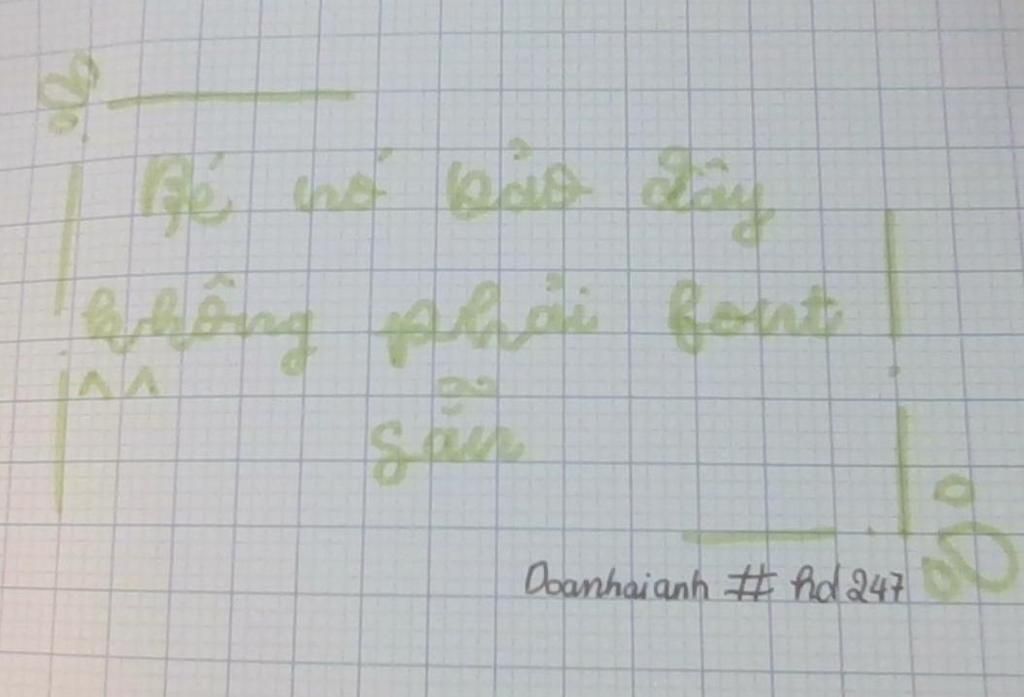 Bé nó bảo đây
không phải font
^^
sẵn
Doanhaianh # hd247